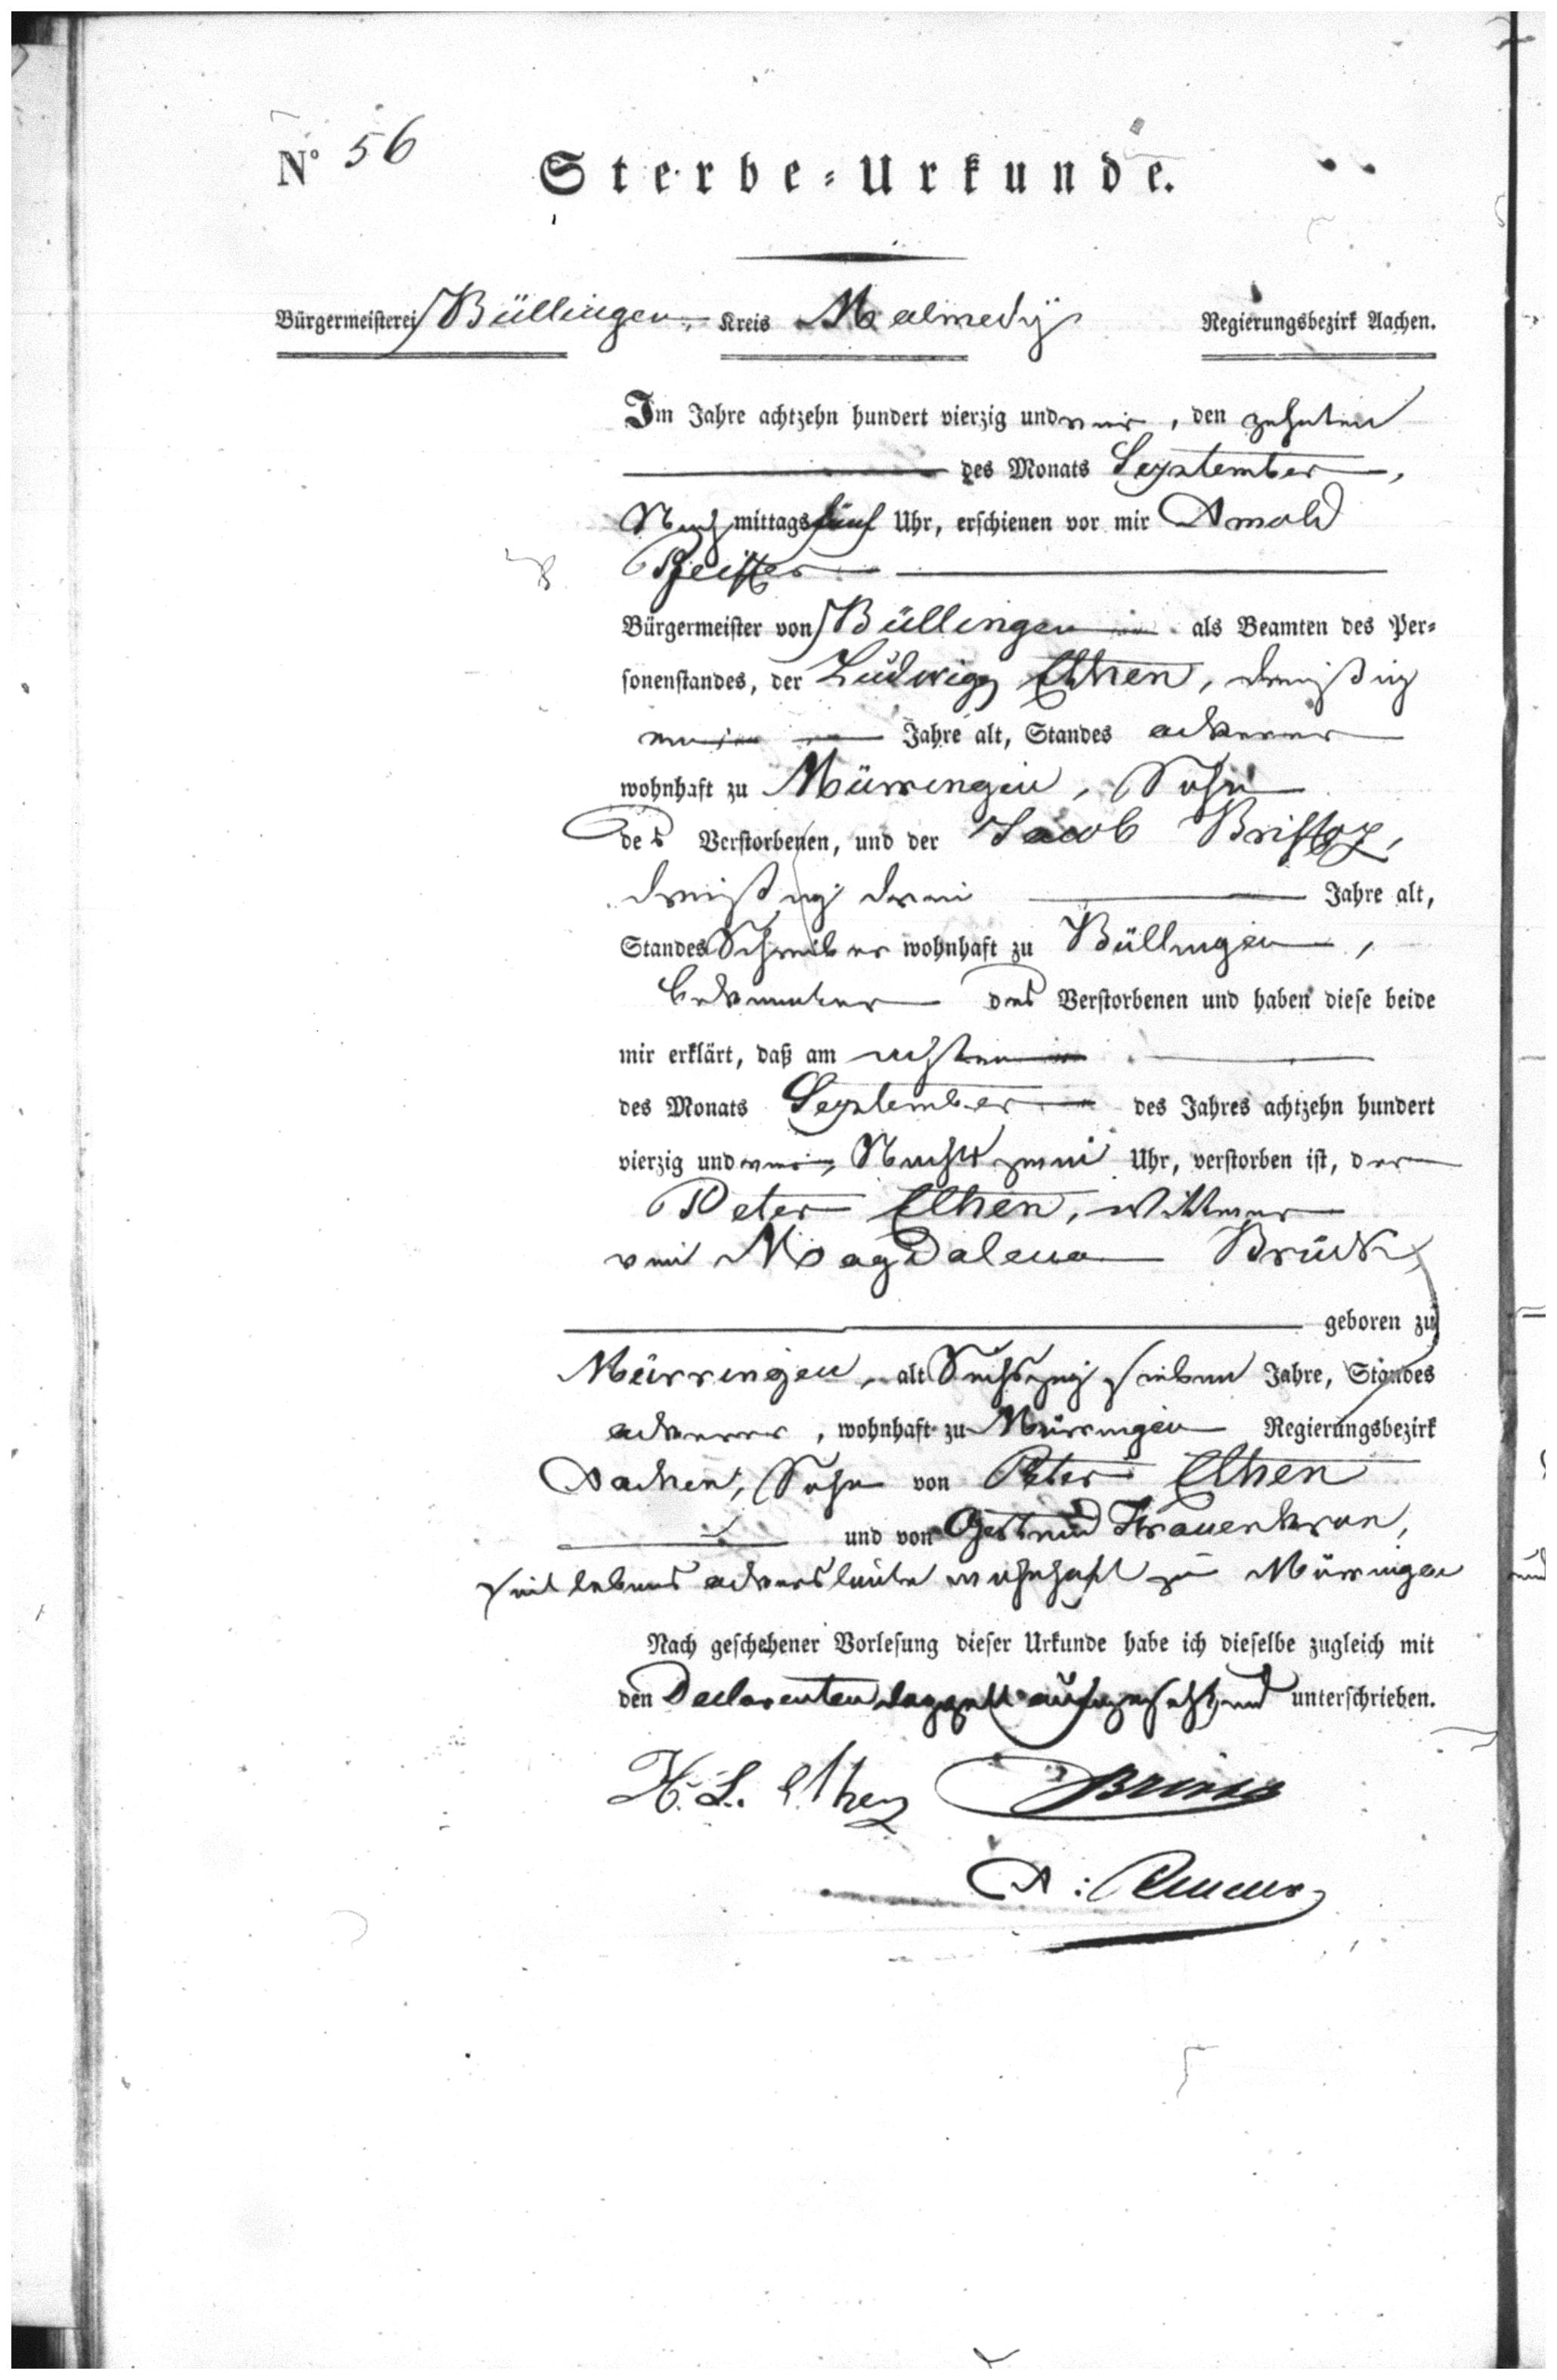 N° 56 Sterbe-Urkunde.
Bürgermeisterei Büllingen, Kreis Malmedÿ Regierungsbezirk Aachen.
Im Jahre achtzehn hundert vierzig und vier, den zehnten
des Monats September,
Nach mittags fünf Uhr, erschienen vor mir Arnold
Bürgermeister von Büllingen als Beamten des Per-
sonenstandes, der Ludwig Ethen, dreißig
Jahre alt, Standes ackerer
wohnhaft zu Mürringen, Sohn
des Verstorbenen, und der Jacob
dreißig drei Jahre alt,
Standes Schreiber wohnhaft zu Büllingen,
bekannter des Verstorbenen und haben diese beide
mir erklärt, daß am achten
des Monats September des Jahres achtzehn hundert
vierzig und vier, Nachts zwei Uhr, verstorben ist, der
Peter Ethen, Wittwer
von Magdalena Brück,
geboren zu
Mürringen, alt Sechszig sieben Jahre, Standes
ackerer, wohnhaft zu Mürringen Regierungsbezirk
Aachen, Sohn von Peter Ethen
und von Gertrud Frauenkron,
zeit lebens ackersleute wohnhaft zu Mürringen
Nach geschehener Vorlesung dieser Urkunde habe ich dieselbe zugleich mit
den Declarenten doppelt und unterschrieben.
H. L. Ethen
A: